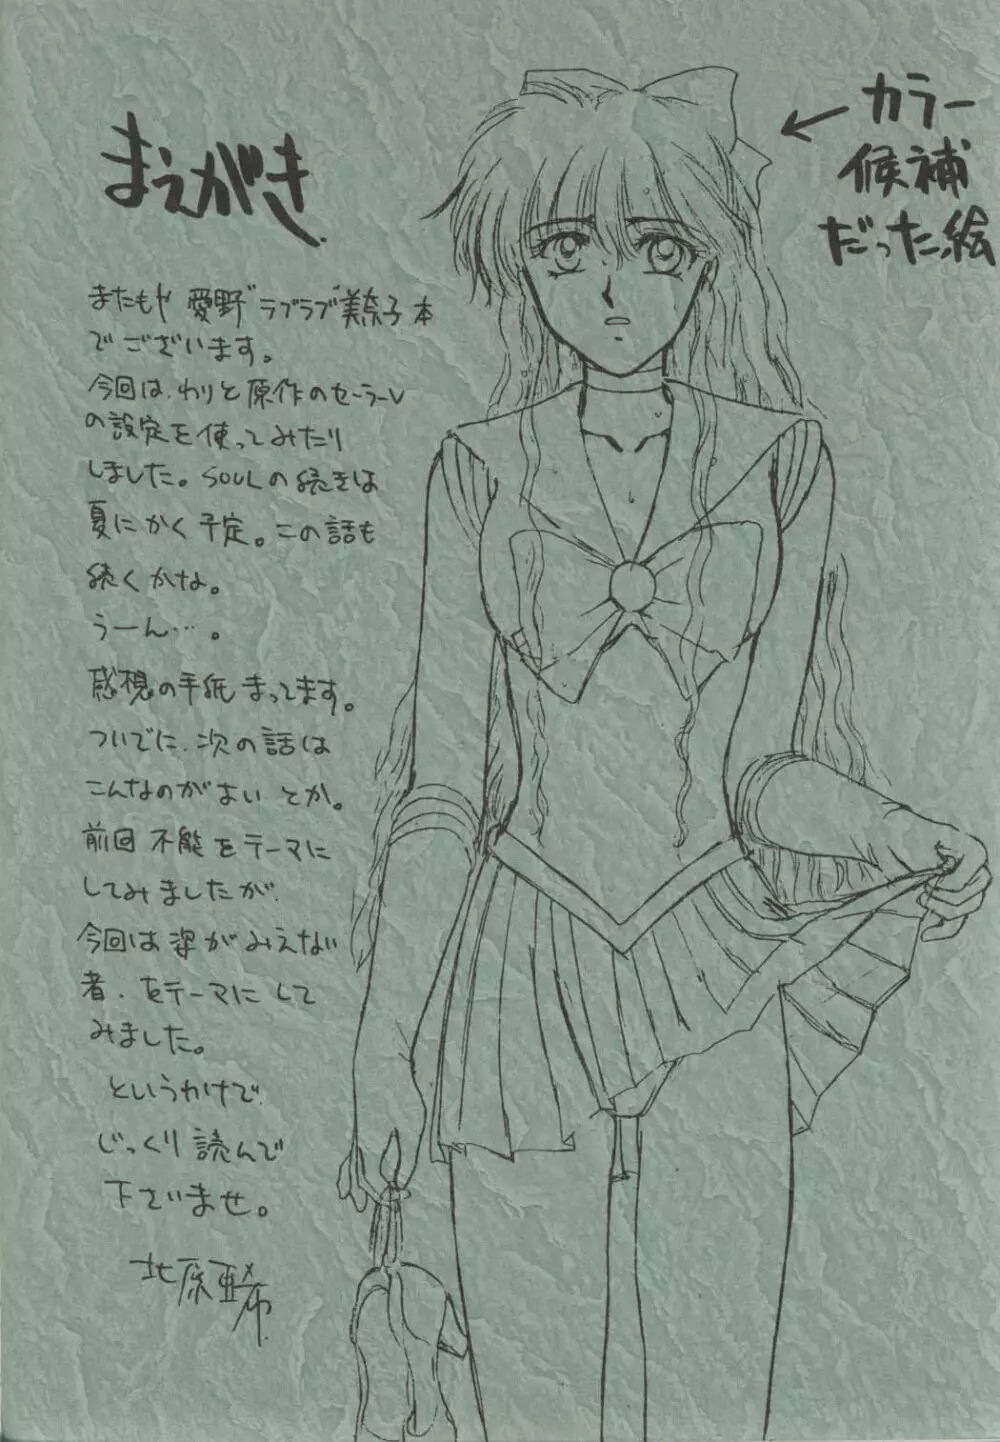 まえがき
またもや 愛野"ラブラブ"美奈子本
でございます。
今回は、わりと原作のセーラーV
の設定を使ってみたり
しました。SOULの続きは
夏にかく予定。この話も
続くかな。
うーん…。
感想の手紙まってます。
ついでに、次の話は
こんなのがよいとか。
前回不能をテーマに
してみましたが、
今回は姿がみえない
者、をテーマにして
みました。
というわけで
じっくり読んで
下さいませ。
北原亜希
←カラー
候補
だった絵